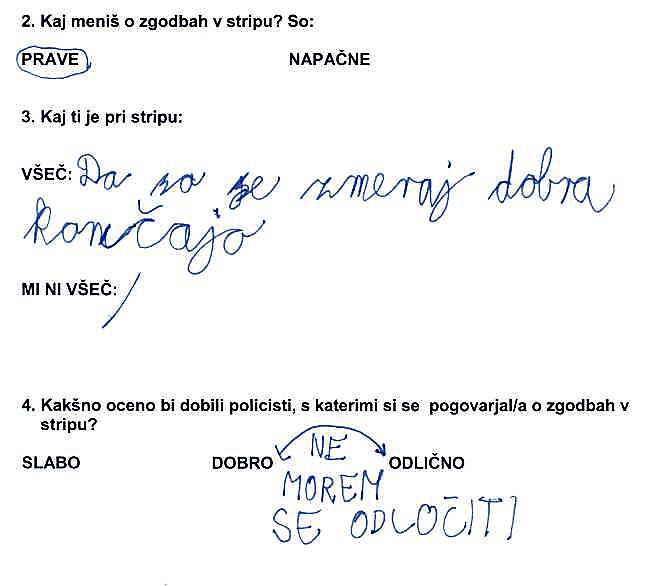 2. Kaj meniš o zgodbah v stripu? So:
PRAVE NAPAČNE
3. Kaj ti je pri stripu:
VŠEČ: Da za se zmeraj dobra
končajo
MI NI VŠEČ: /
4. Kakšno oceno bi dobili policisti, s katerimi si se pogovarjal/a o zgodbah v
stripu?
SLABO DOBRO NE ODLIČNO
MOREM
SE ODLOČITI